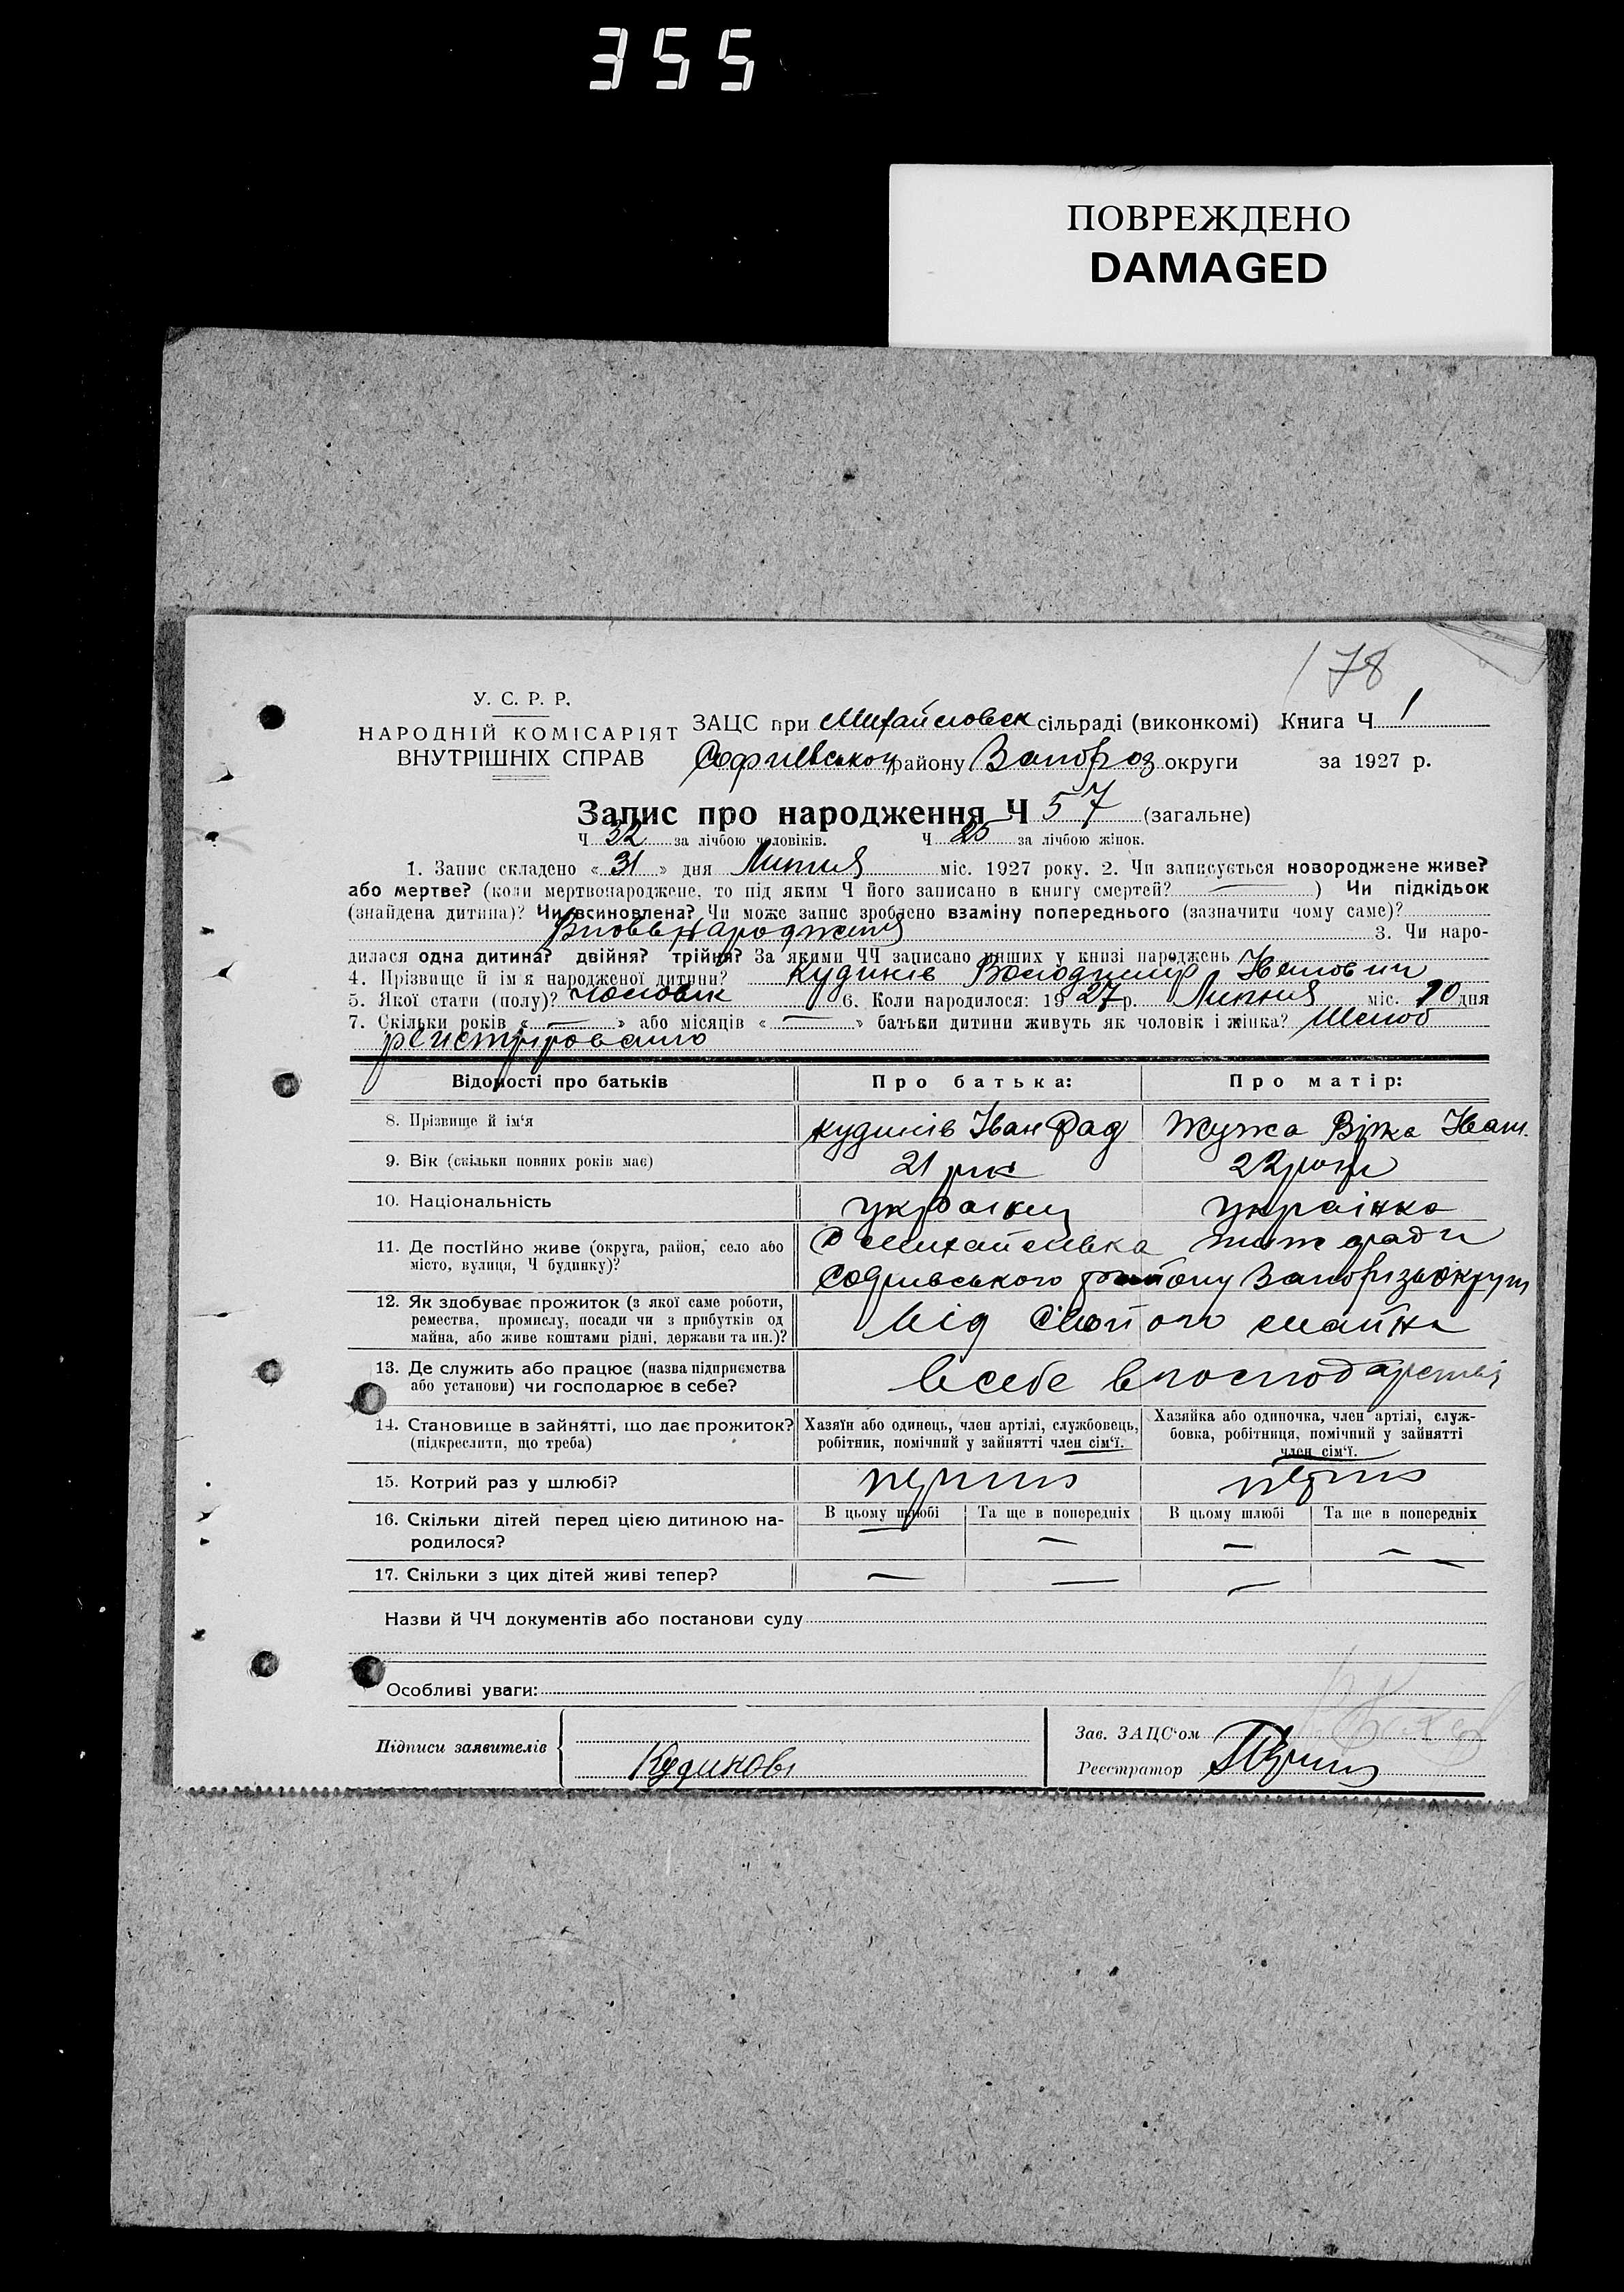 355
ПОВРЕЖДЕНО
DAMAGED
178
У. С. Р. Р.
НАРОДНІЙ КОМІСАРІЯТ
ВНУТРІШНІХ СПРАВ
ЗАЦС при Михайловск сільраді (виконкомі) Книга Ч 1
Софиевського району Запороз округи за 1927 р.
Запис про народження Ч 57 (загальне)
Ч 32 за лічбою чоловіків. Ч 25 за лічбою жінок.
1. Запис складено « 31 » дня Липня міс. 1927 року. 2. Чи записується новороджене живе?
або мертве? (коли мертвонароджене, то під яким Ч його записано в книгу смертей? — ) Чи підкідьок
(знайдена дитина)? Чи всиновлена? Чи може запис зроблено взаміну попереднього (зазначити чому саме)?
Вновь народжения 3. Чи наро-
дилася одна дитина? двійня? трійня? За якими ЧЧ записано инших у книзі народжень
4. Прізвище й ім'я народженої дитини? Кудинів Володимир Іванович
5. Якої стати (полу)? чоловік 6. Коли народилося: 1927 р. Липня міс. 10 дня
7. Скільки років « — » або місяців « — » батьки дитини живуть як чоловік і жінка? Шлюб
регистрировано
Відомості про батьків Про батька: Про матір:
8. Прізвище й ім'я Кудинів Іван Рад Жужа Вірка Іван.
9. Вік (скільки повних років має) 21 рік 22 роки
10. Національність украінец украінка
11. Де постійно живе (округа, район, село або
місто, вулиця, Ч будинку)?
С Михайлівка
Софиевського району Запорізь округи
12. Як здобуває прожиток (з якої саме роботи,
ремества, промислу, посади чи з прибутків од
майна, або живе коштами рідні, держави та ин.)?
від свойого майна
13. Де служить або працює (назва підприємства
або установи) чи господарює в себе?
в себе в господарстві
14. Становище в зайнятті, що дає прожиток?
(підкреслити, що треба)
Хазяїн або одинець, член артілі, службовець,
робітник, помічний у зайнятті член сім'ї.
Хазяйка або одиночка, член артілі, служ-
бовка, робітниця, помічний у зайнятті
член сім'ї.
15. Котрий раз у шлюбі? перший перший
16. Скільки дітей перед цією дитиною на-
родилося?
В цьому шлюбі Та ще в попередніх В цьому шлюбі Та ще в попередніх
— — — —
17. Скільки з цих дітей живі тепер? — — — —
Назви й ЧЧ документів або постанови суду
Особливі уваги:
Підписи заявителів
Кудинові
Зав. ЗАЦС'ом
Реєстратор